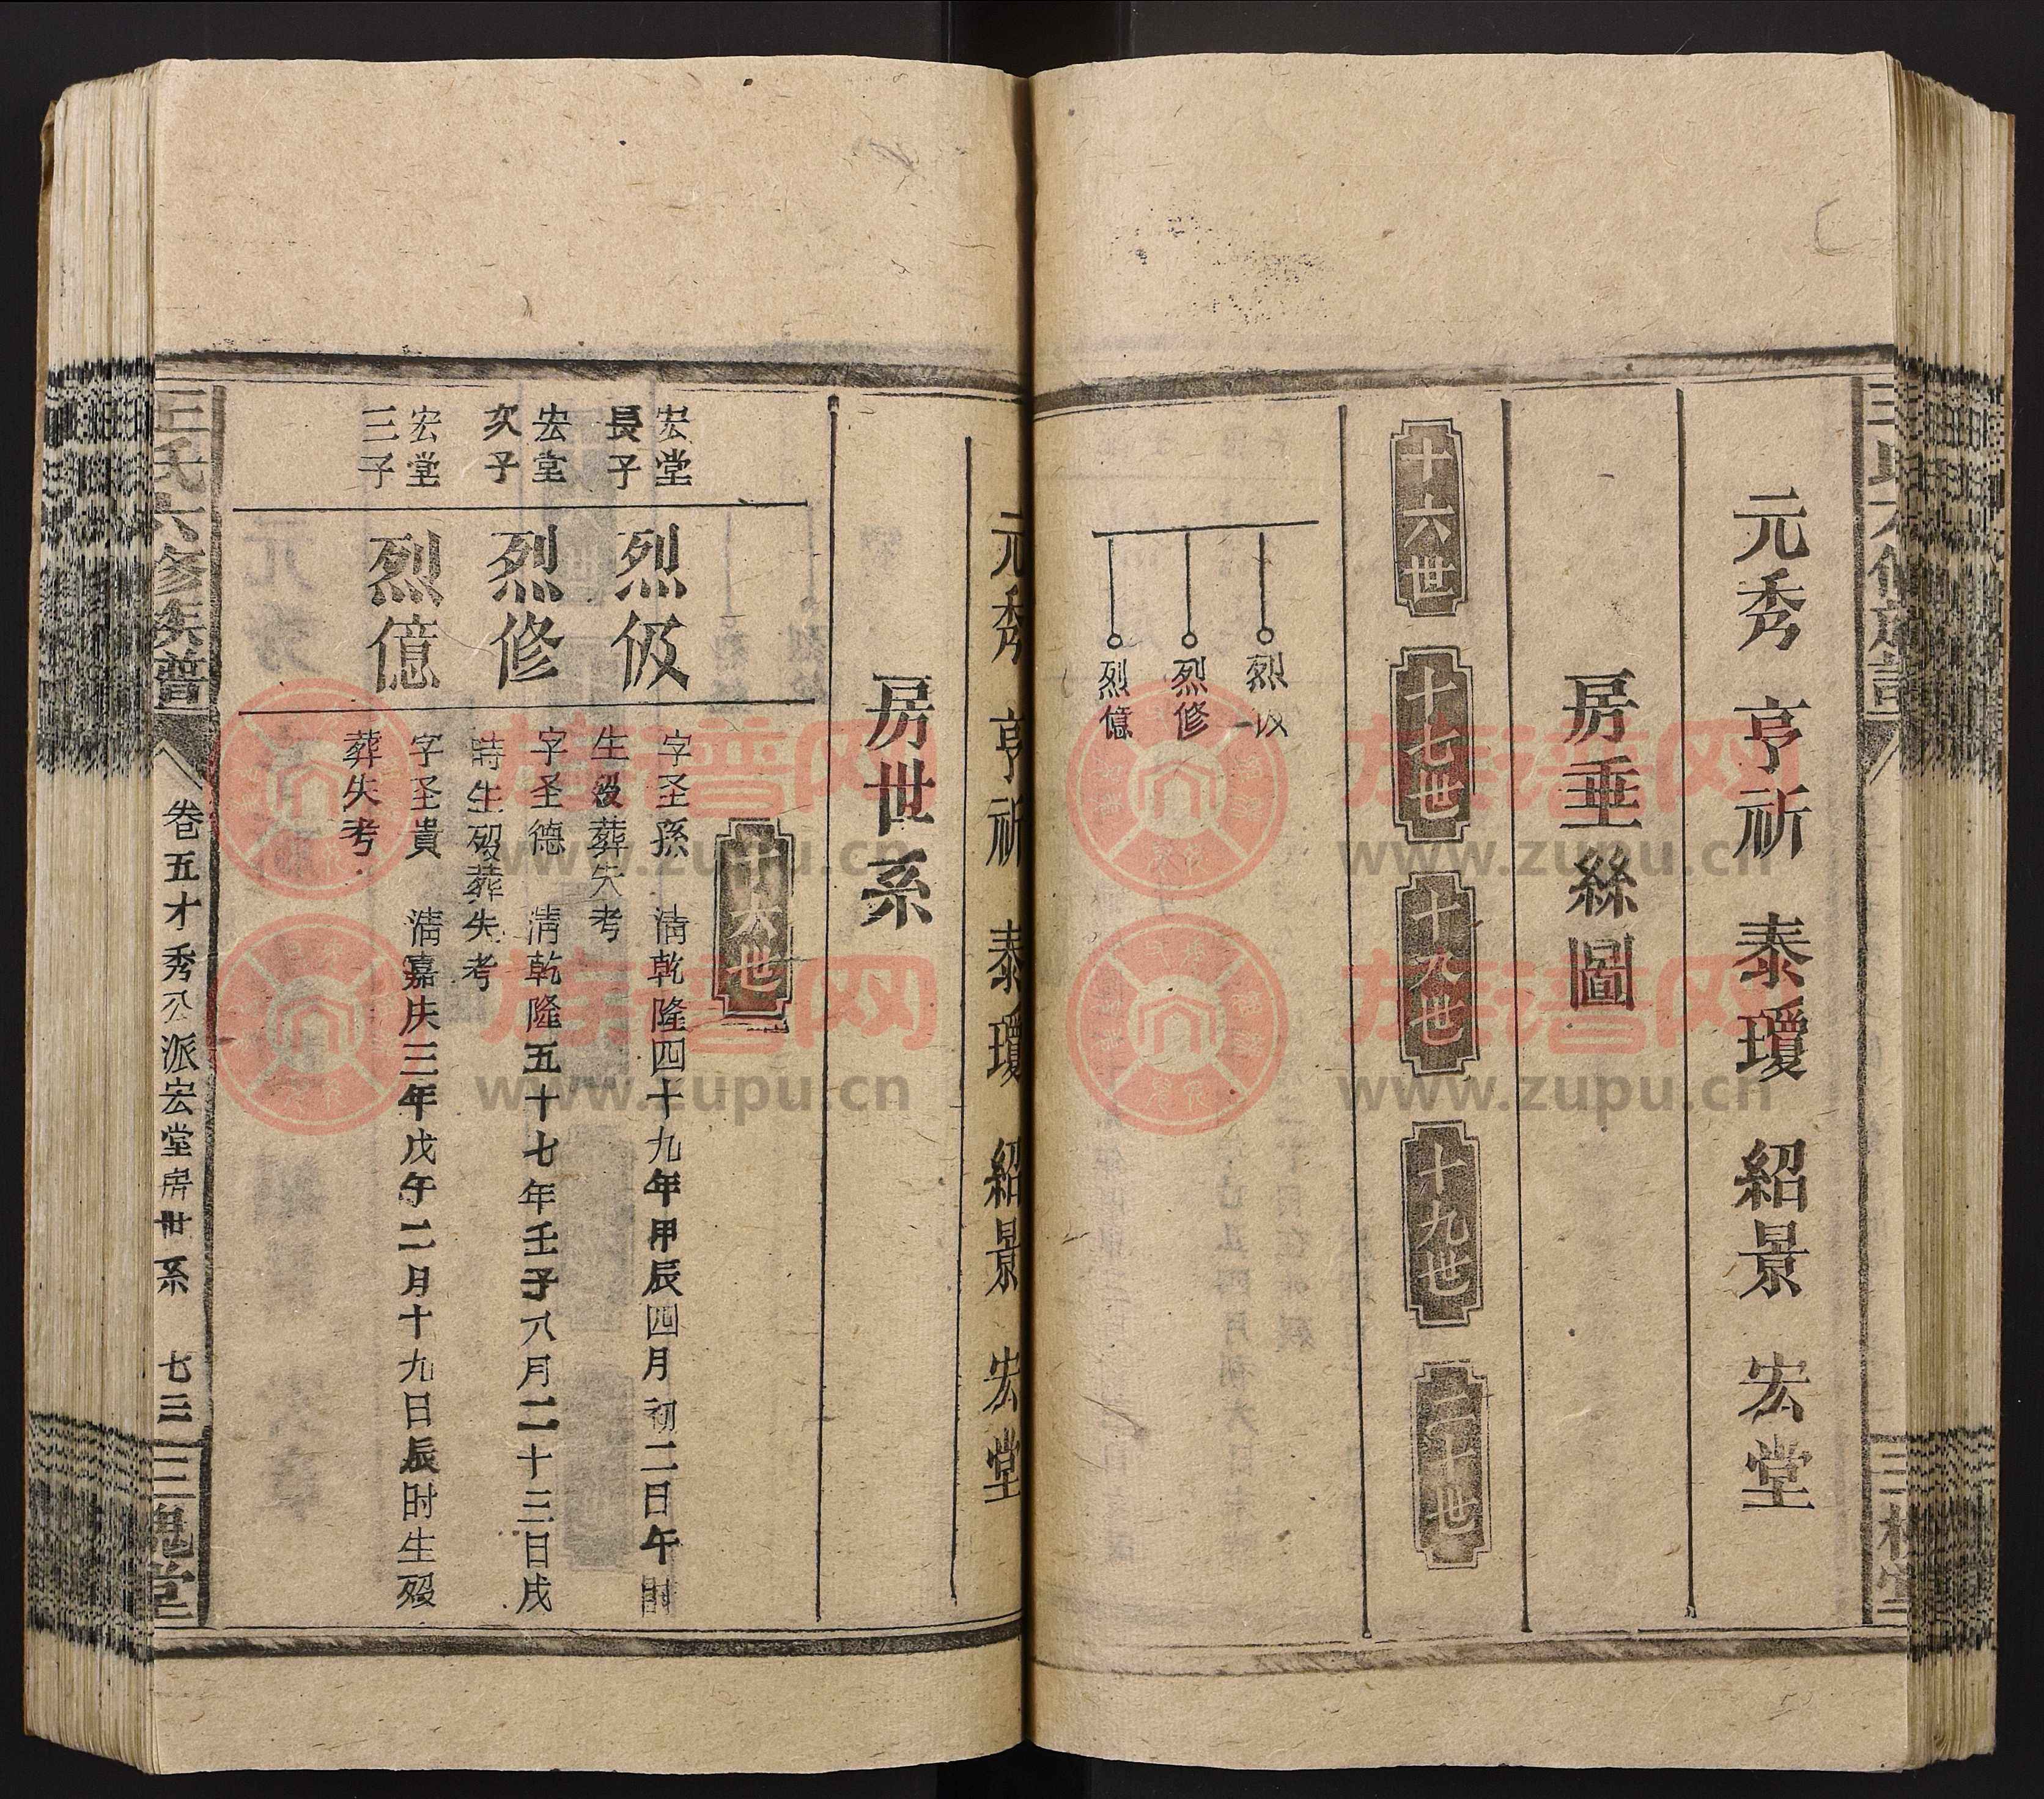 元秀 亨祈 泰瓊 紹景 宏堂
房垂絲圖
十六世 十七世 十八世 十九世 二十世
烈伋
烈修
烈億
元秀 亨祈 泰瓊 紹景 宏堂
房世系
十六世
宏堂
長子
烈伋
字圣孫 清乾隆四十九年甲辰四月初二日午時
生歿葬失考
宏堂
次子
烈修
字圣德 清乾隆五十七年壬子八月二十三日戌
時生歿葬失考
宏堂
三子
烈億
字圣貴 清嘉庆三年戊午二月十九日辰时生歿
葬失考
王氏六修族譜
卷五才秀公派宏堂房世系 七三
三槐堂
族譜网
www.zupu.cn
族譜网
www.zupu.cn
族譜网
www.zupu.cn
族譜网
www.zupu.cn